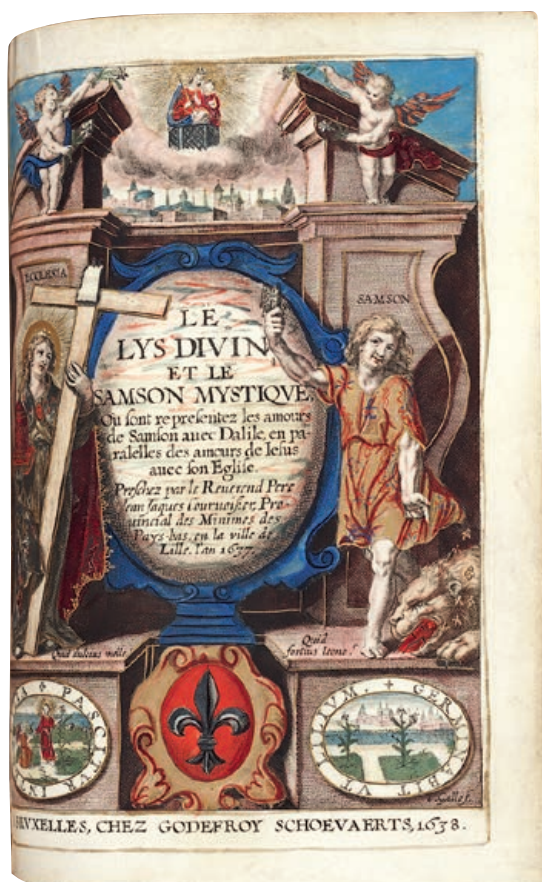 ECCLESIA
SAMSON
LE
LYS DIVIN,
ET LE
SAMSON MYSTIQVE,
Ou sont representez les amours
de Samson auec Dalile, en pa-
ralelles des amours de Iesus
auec son Eglise.
Preschez par le Reuerend Pere
ean Jaques Courvoisier, Pro-
uincial des Minimes des
Pays-bas, en la ville de
Lille, l'an 1637.
Quid dulcius melle
Quid
fortius leone?
PASCITVR IN
GERMINABIT VT LILIVM.
BRVXELLES, CHEZ GODEFROY SCHOEVAERTS, 1638.